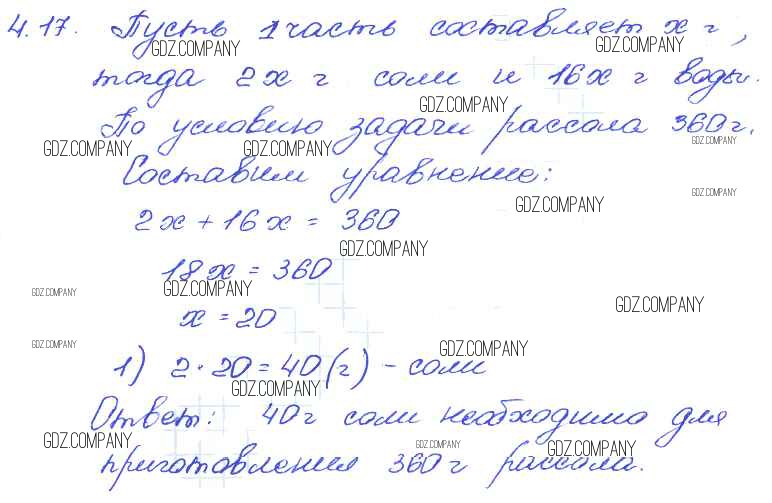 4.17. Пусть 1 часть составляет x г,
GDZ.COMPANY GDZ.COMPANY
тогда 2x г соли и 16x г воды.
GDZ.COMPANY
По условию задачи рассола 360 г.
GDZ.COMPANY GDZ.COMPANY GDZ.COMPANY
Составим уравнение:
GDZ.COMPANY
GDZ.COMPANY
2x + 16x = 360
GDZ.COMPANY
18x = 360
GDZ.COMPANY GDZ.COMPANY GDZ.COMPANY
x = 20
GDZ.COMPANY GDZ.COMPANY
1) 2 · 20 = 40 (г) - соли
GDZ.COMPANY
Ответ: 40 г соли необходимо для
GDZ.COMPANY GDZ.COMPANY GDZ.COMPANY
приготовления 360 г рассола.